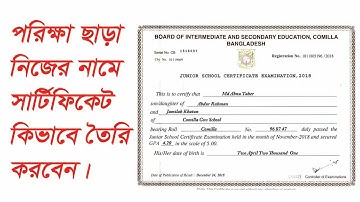 পরিক্ষা ছাড়া
নিজের নামে
সার্টিফিকেট
কিভাবে তৈরি
করবেন।
BOARD OF INTERMEDIATE AND SECONDARY EDUCATION, COMILLA
BANGLADESH
Serial No. CB
Registration No.
JUNIOR SCHOOL CERTIFICATE EXAMINATION, 2018
This is to certify that Md Abu Taher
son/daughter of Abdur Rahman
and
of Comilla Gov School
bearing Roll Comilla No. 96 07 47 duly passed the
Junior School Certificate Examination held in the month of November-2018 and secured
GPA 4.20 in the scale of 5.00.
His/Her date of birth is Two April Two Thousand One
Date of Publication of Result : December 24, 2018
Controller of Examinations